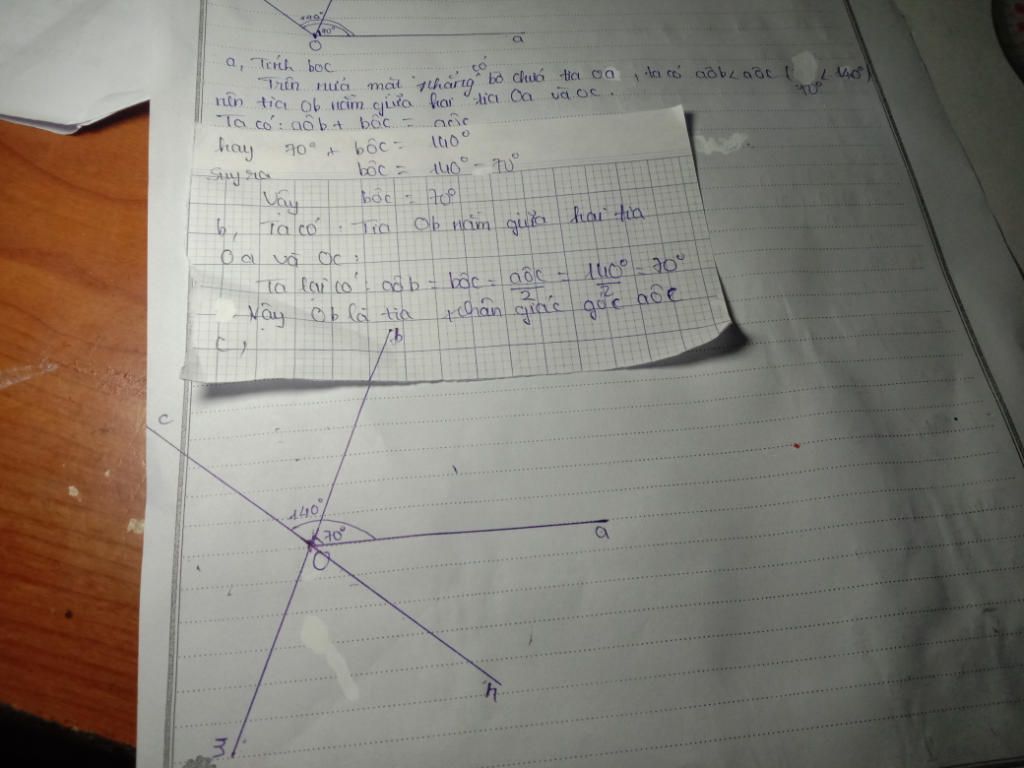 140°
70°
O
a
a, Tính bôc
Trên nửa mặt phẳng có bờ chứa tia Oa, ta có aôb < aôc ( 70° < 140°)
nên tia Ob nằm giữa hai tia Oa và Oc.
Ta có: aôb + bôc = aôc
hay 70° + bôc = 140°
Suy ra bôc = 140° - 70°
Vậy bôc = 70°
b, Ta có: Tia Ob nằm giữa hai tia
Oa và Oc:
Ta lại có: aôb = bôc = aôc/2 = 140°/2 = 70°
Vậy Ob là tia phân giác góc aôc
c,
b
c
140°
70°
a
O